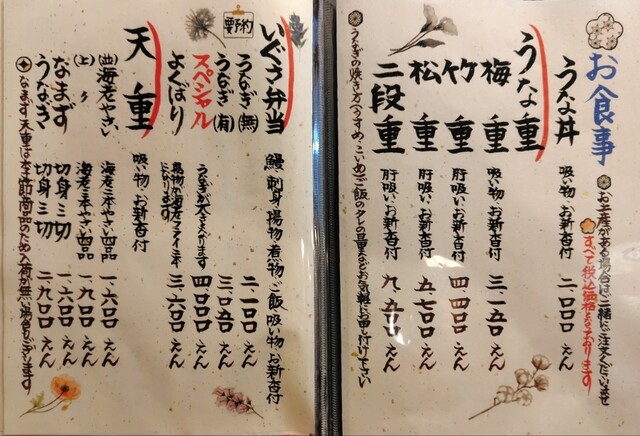 お食事
お土産がある場合はご一緒にご注文くださいませ
すべて税込価格となっております
うな丼 吸い物・お新香付 二、〇〇〇えん
うな重
梅重 吸い物・お新香付 三、一五〇えん
竹重 肝吸い・お新香付 四、四〇〇えん
松重 肝吸い・お新香付 五、七〇〇えん
二段重 肝吸い・お新香付 九、五〇〇えん
うなぎの焼き方(うすめ、こいめ)ご飯のタレの量などお気軽にお申し付け下さい
要予約
いぐさ弁当 鰻・刺身・揚物・煮物・ご飯・吸い物・お新香付
うなぎ(無) 二、一〇〇えん
うなぎ(有) 三、〇五〇えん
スペシャル うなぎが大きくなります 四、〇〇〇えん
よくばり 揚物が海老フライ三本になります 三、六〇〇えん
天重 吸い物・お新香付
(並)海老やさい 海老二本やさい四品 一、六〇〇えん
(上)〃 海老三本やさい四品 一、九〇〇えん
なまず 切身三切 一、六〇〇えん
うなぎ 切身三切 二、九〇〇えん
なまず天重は季節商品のため入荷が無い場合もございます